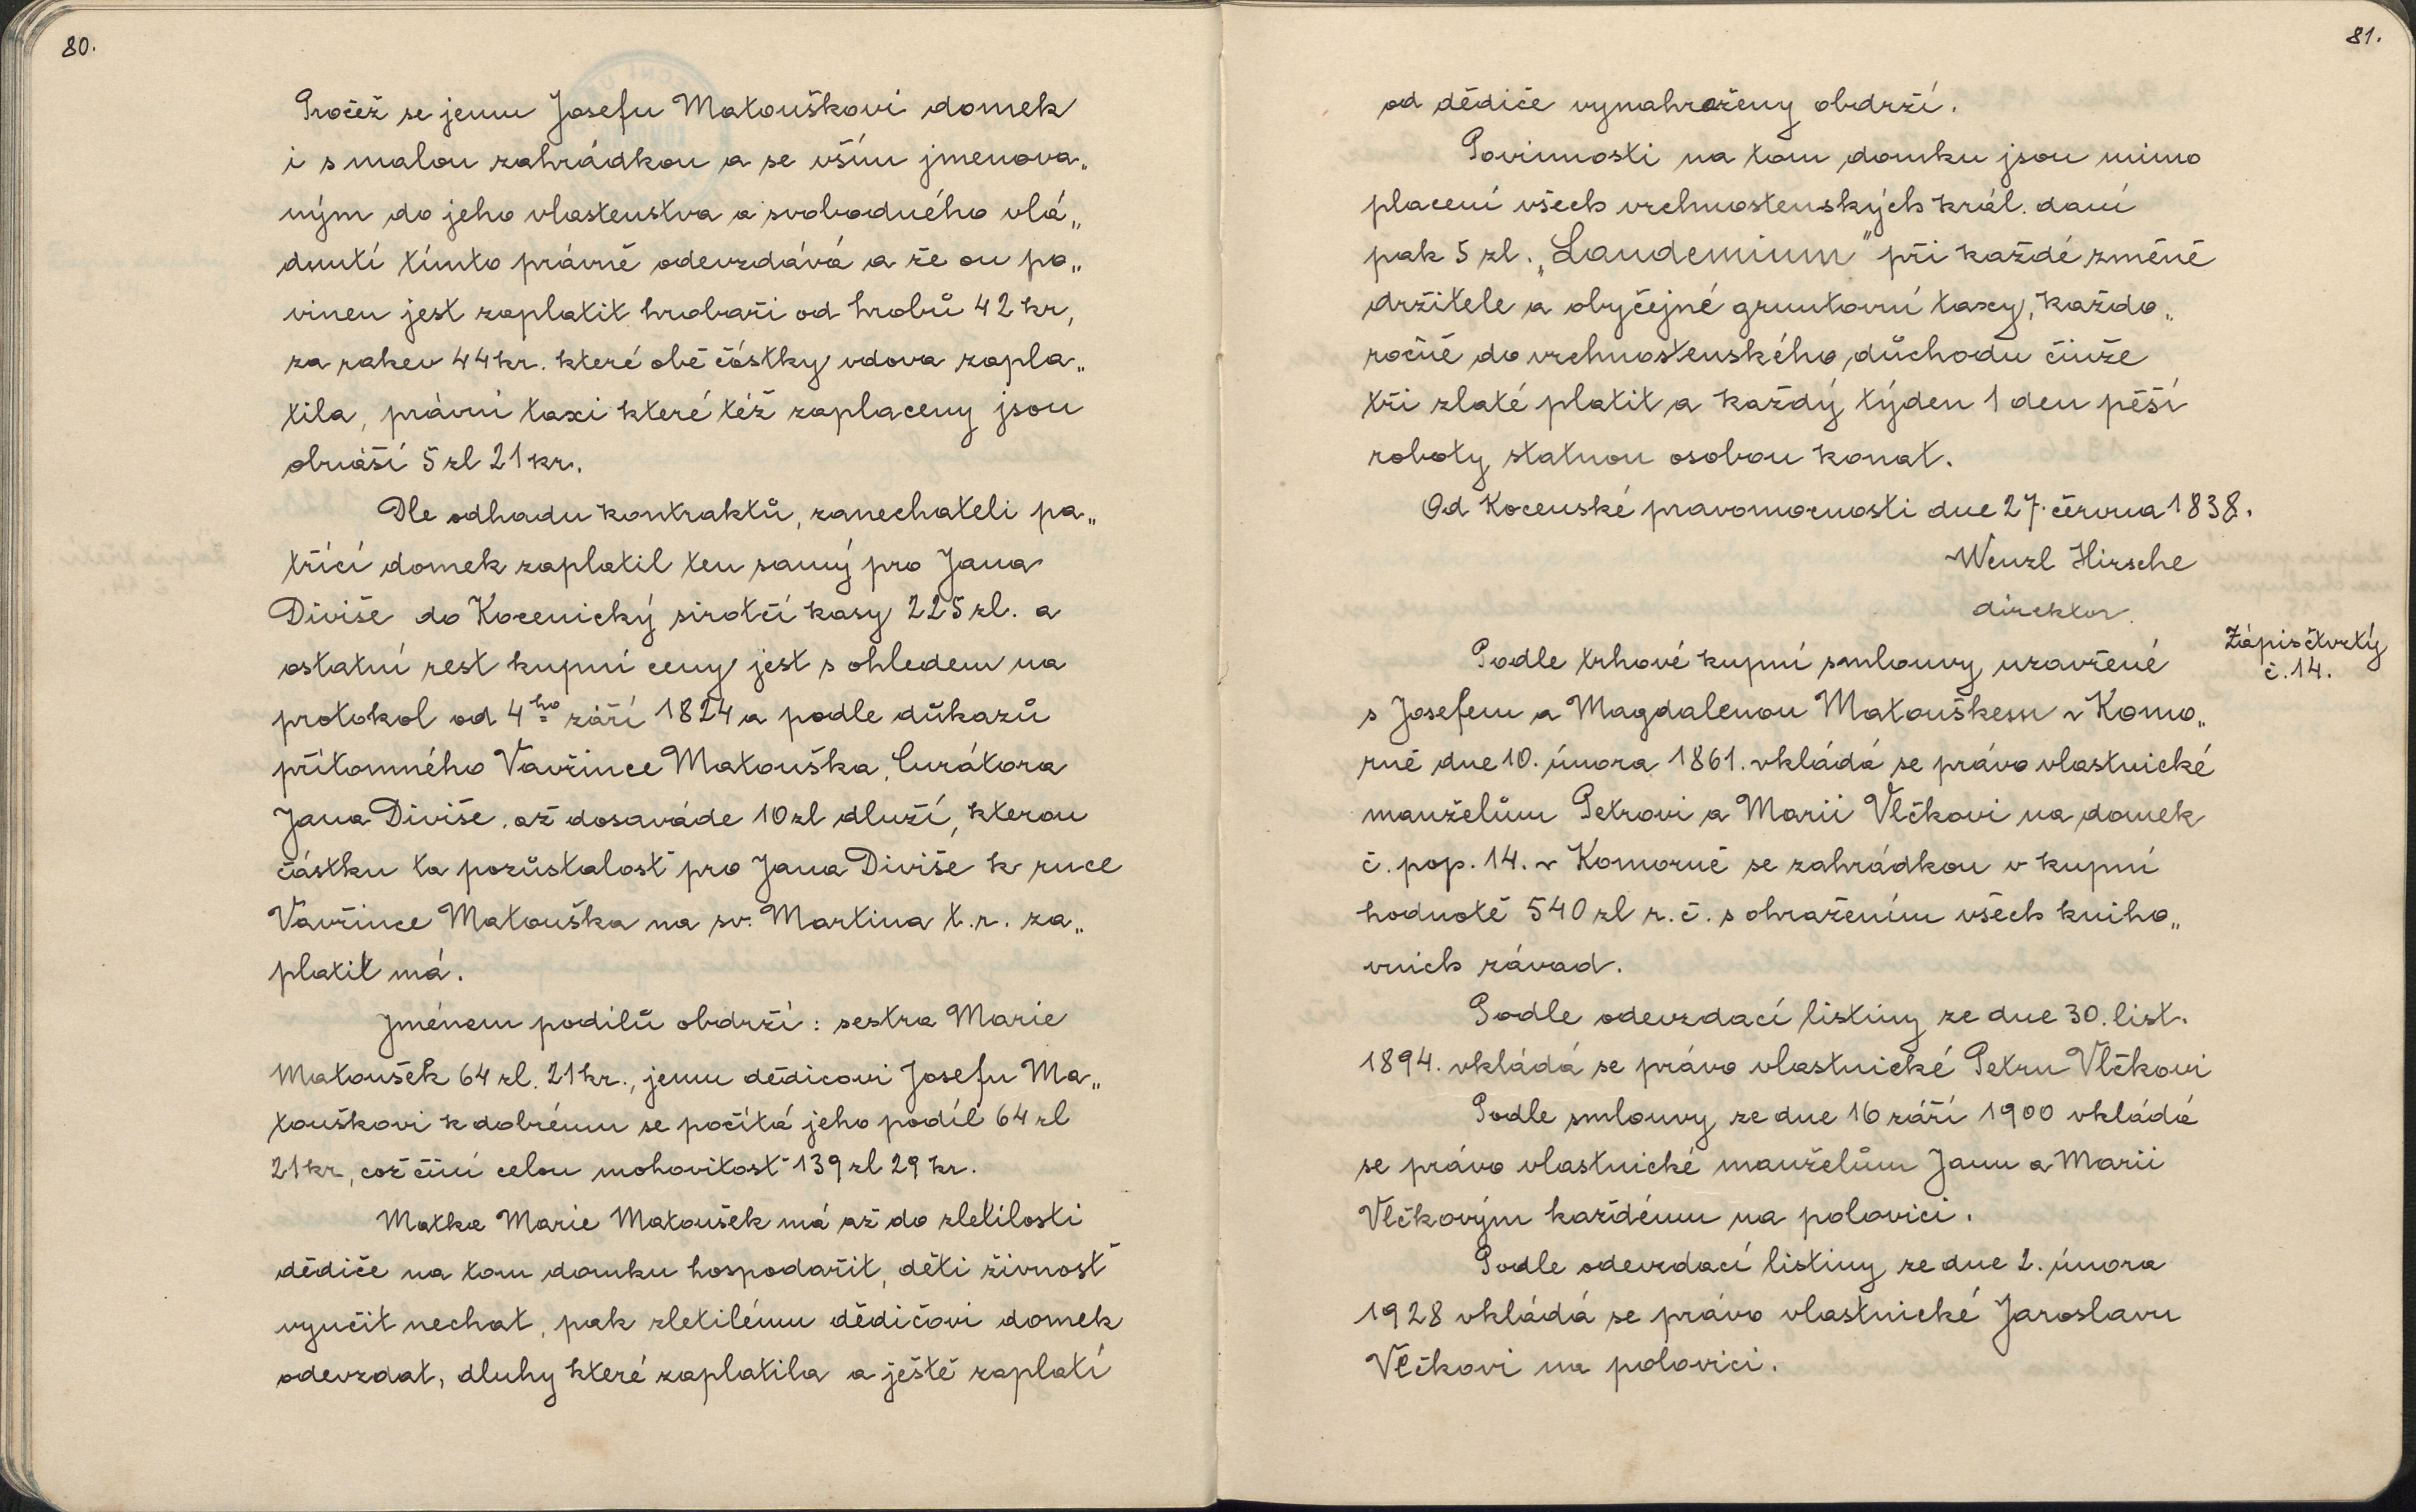 80.
Pročež se jemu Josefu Matouškovi domek
i s malou zahrádkou a se vším jmenova„
ným do jeho vlastenstva a svobodného vlá„
dnutí tímto právně odevzdává a že on po„
vinen jest zaplatit hrobaři od hrobů 42 kr,
za rakev 44 kr. které obě částky vdova zapla„
tila, právní taxi které též zaplaceny jsou
obnáší 5 zl 21 kr.
Dle odhadu kontraktů, zanechateli pa„
třící domek zaplatil ten samý pro Jana
Diviše do Kocenický sirotčí kasy 225 zl. a
ostatní rest kupní ceny jest s ohledem na
protokol od 4ho září 1824 a podle důkazů
přítomného Vavřince Matouška, Curátora
Jana Diviše, až dosaváde 10 zl dluží, kterou
částku ta pozůstalosť pro Jana Diviše k ruce
Vavřince Matouška na sv. Martina t. r. za„
platit má.
Jménem podílů obdrží: sestra Marie
Matoušek 64 zl. 21 kr., jemu dědicovi Josefu Ma„
touškovi k dobrému se počítá jeho podíl 64 zl
21 kr, což činí celou mohovitosť 139 zl 29 kr.
Matka Marie Matoušek má až do zletilosti
dědiče na tom domku hospodařit, děti živnosť
vyučit nechat, pak zletilému dědičovi domek
odevzdat, dluhy které zaplatila a ještě zaplatí
81.
od dědiče vynahraženy obdrží.
Povinnosti na tom domku jsou mimo
placení všech vrchnostenských král. daní
pak 5 zl. „Laudemium" při každé změně
držitele a obyčejné gruntovní taxy, každo„
ročně do vrchnostenského důchodu činže
tři zlaté platit a každý týden 1 den pěší
roboty statnou osobou konat.
Od Kocenské pravomocnosti dne 27. června 1838.
Wenzl Hirsche
direktor.
Zápis čtvrtý
č. 14.
Podle trhové kupní smlouvy uzavřené
s Josefem a Magdalenou Matouškem v Komo„
rně dne 10. února 1861. vkládá se právo vlastnické
manželům Petrovi a Marii Vlčkovi na domek
č. pop. 14. v Komorně se zahrádkou v kupní
hodnotě 540 zl r. č. s obražením všech kniho„
vních závad.
Podle odevzdací listiny ze dne 30. list.
1894. vkládá se právo vlastnické Petru Vlčkovi
Podle smlouvy ze dne 16 září 1900 vkládá
se právo vlastnické manželům Janu a Marii
Vlčkovým každému na polovici.
Podle odevzdací listiny ze dne 2. února
1928 vkládá se právo vlastnické Jaroslavu
Vlčkovi na polovici.